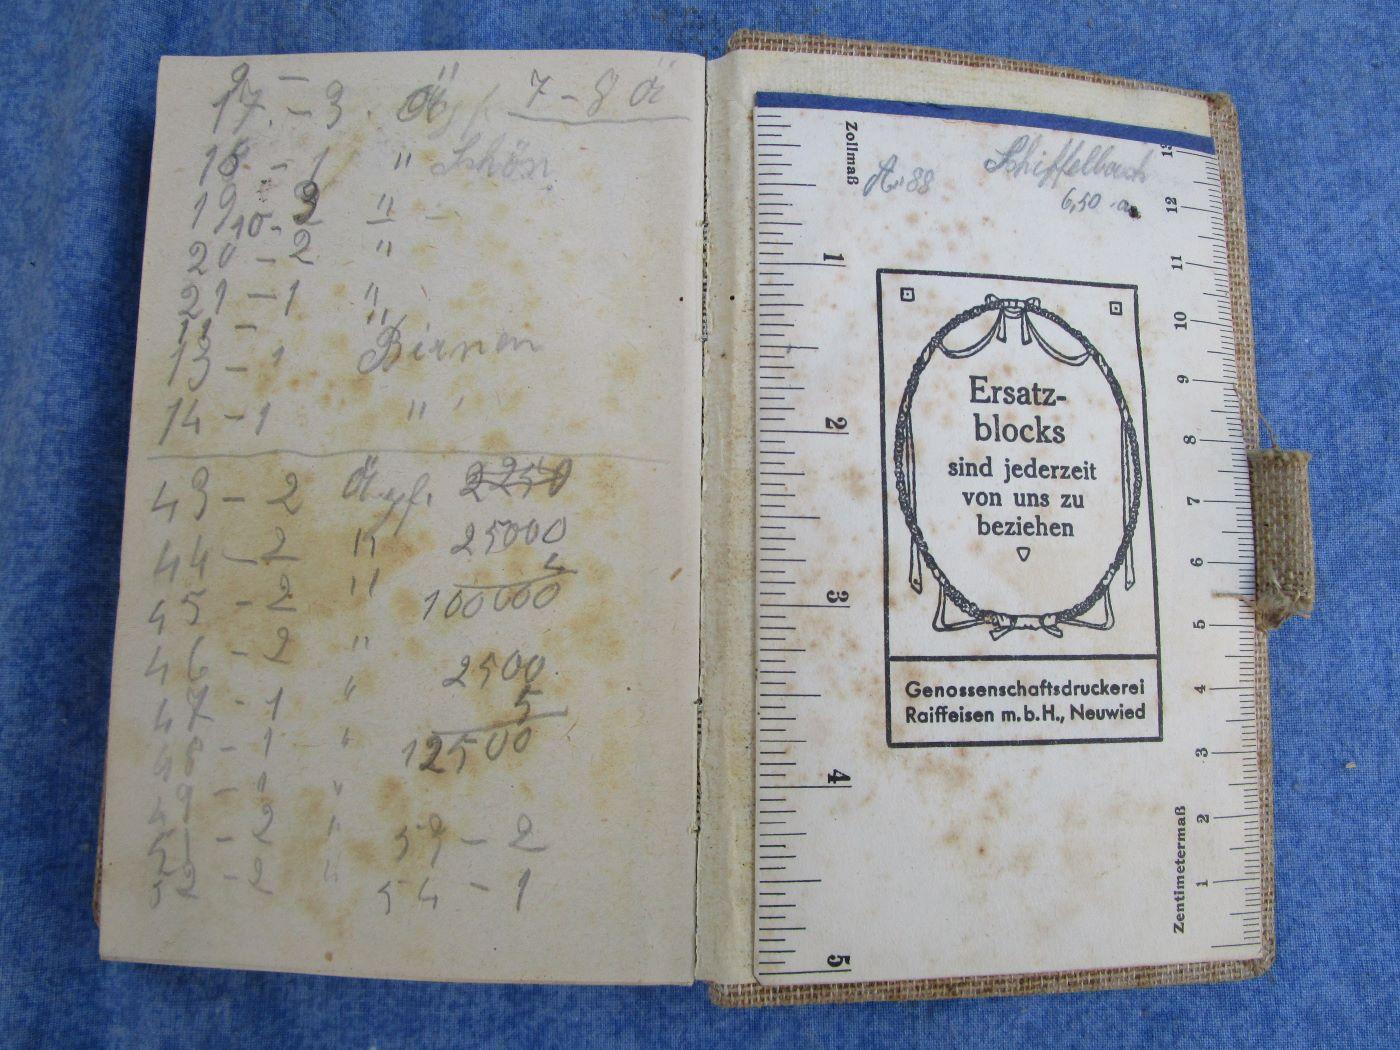 9 –
17. – 3. Äpf. 7 – 8 Ä
18 – 1 " Schön
19 – 2 " –
10 –
20 – 2 "
21 – 1 "
13 – 1 Birnen
14 – 1 "
43 – 2 Äpf. 2250
44 – 2 " 25000
4
45 – 2 " 100000
46 – 2 " 2500
47 – 1 " 5
48 – 1 " 12500
49 – 1 "
51 – 2 " 59 – 2
52 – 2 " 54 – 1
Zollmaß
1
2
3
4
5
A. 88 Schiffelbach
6,50
Ersatz-
blocks
sind jederzeit
von uns zu
beziehen
Genossenschaftsdruckerei
Raiffeisen m.b.H., Neuwied
13
12
11
10
9
8
7
6
5
4
3
2
1
Zentimetermaß